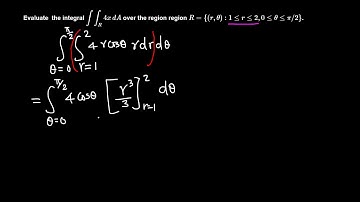 Evaluate the integral ∬_R 4x dA over the region region R = {(r, θ) : 1 ≤ r ≤ 2, 0 ≤ θ ≤ π/2}.
∫_{θ=0}^{π/2} ( ∫_{r=1}^{2} 4 r cosθ r dr ) dθ
= ∫_{θ=0}^{π/2} 4 cosθ [r³/3]_{r=1}^{2} dθ